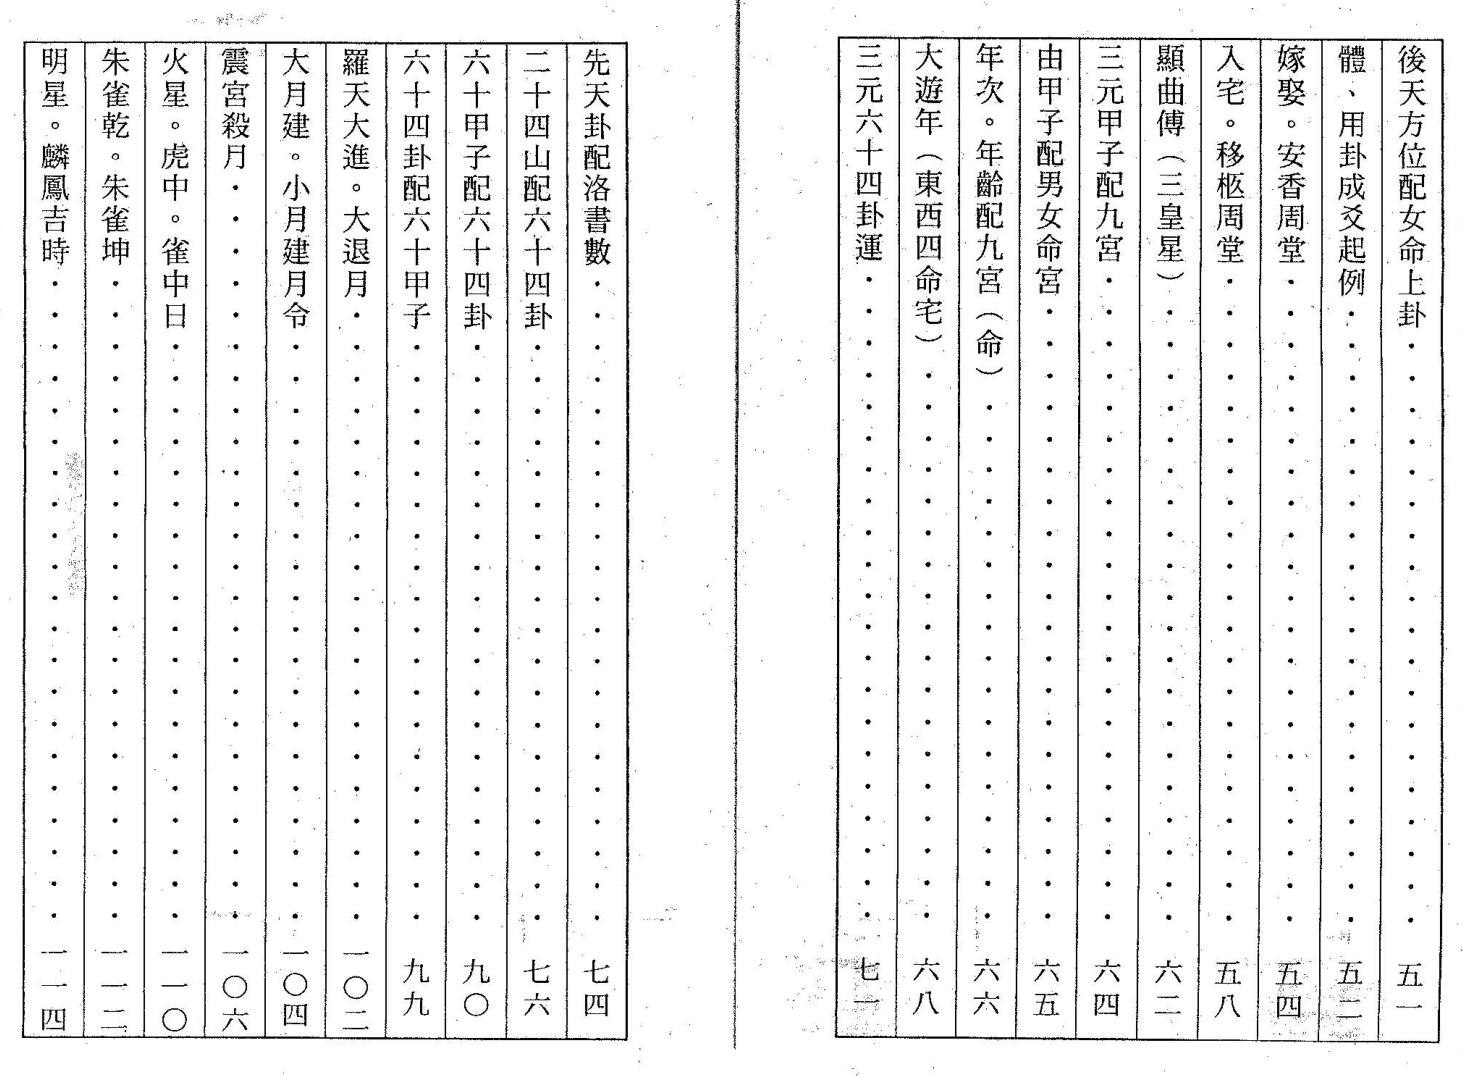 後天方位配女命上卦・・・・・・・・・・・・・・・・・・・五一
體、用卦成爻起例・・・・・・・・・・・・・・・・・・・・五二
嫁娶。安香周堂・・・・・・・・・・・・・・・・・・・・・五四
入宅。移柩周堂・・・・・・・・・・・・・・・・・・・・・五八
顯曲傅（三皇星）・・・・・・・・・・・・・・・・・・・・六二
三元甲子配九宮・・・・・・・・・・・・・・・・・・・・・六四
由甲子配男女命宮・・・・・・・・・・・・・・・・・・・・六五
年次。年齡配九宮（命）・・・・・・・・・・・・・・・・・六六
大遊年（東西四命宅）・・・・・・・・・・・・・・・・・・六八
三元六十四卦運・・・・・・・・・・・・・・・・・・・・・七一
先天卦配洛書數・・・・・・・・・・・・・・・・・・・・・七四
二十四山配六十四卦・・・・・・・・・・・・・・・・・・・七六
六十甲子配六十四卦・・・・・・・・・・・・・・・・・・・九〇
六十四卦配六十甲子・・・・・・・・・・・・・・・・・・・九九
羅天大進。大退月・・・・・・・・・・・・・・・・・・・・一〇二
大月建。小月建月令・・・・・・・・・・・・・・・・・・・一〇四
震宮殺月・・・・・・・・・・・・・・・・・・・・・・・・一〇六
火星。虎中。雀中日・・・・・・・・・・・・・・・・・・・一一〇
朱雀乾。朱雀坤・・・・・・・・・・・・・・・・・・・・・一一二
明星。麟鳳吉時・・・・・・・・・・・・・・・・・・・・・一一四